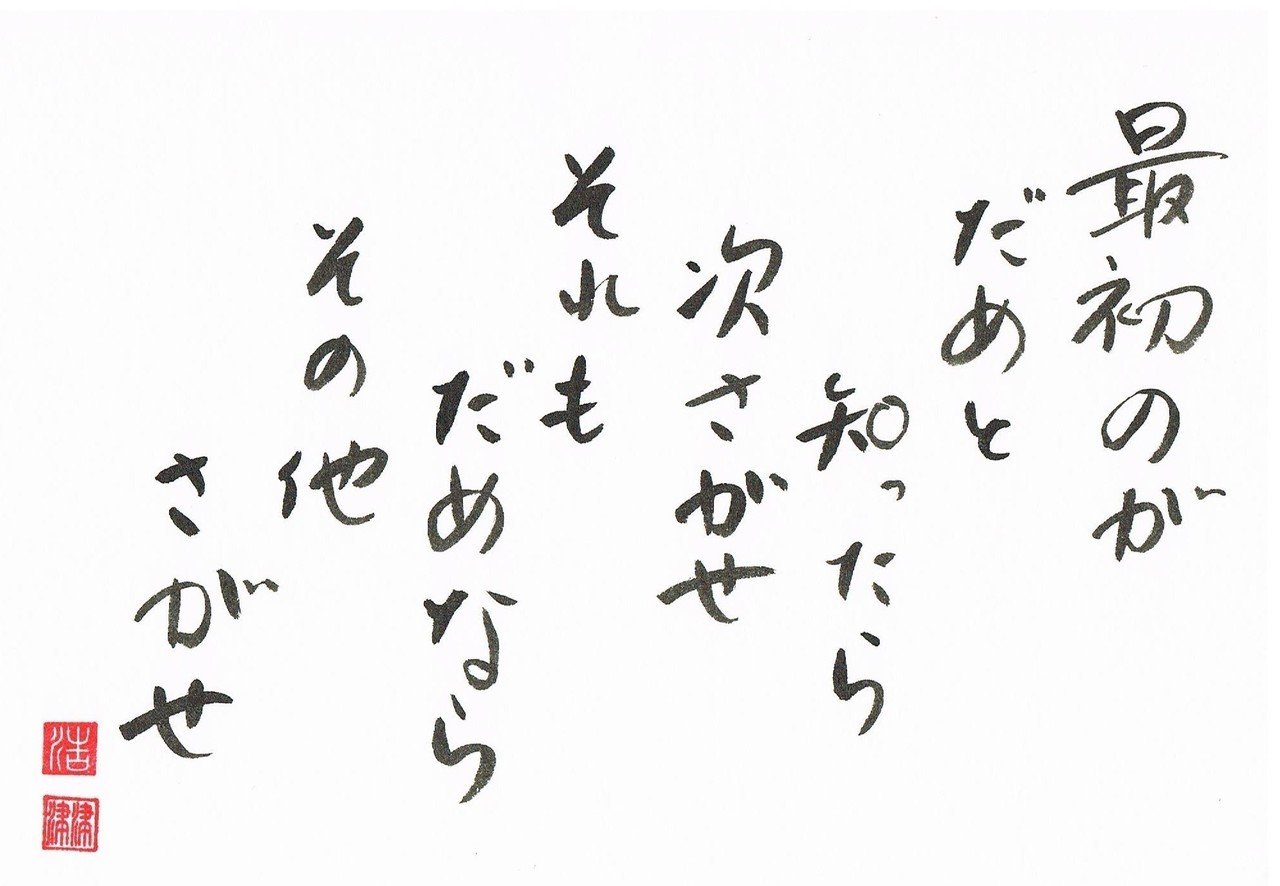 最初のが
だめと
知ったら
次さがせ
それも
だめなら
その他
さがせ
浩